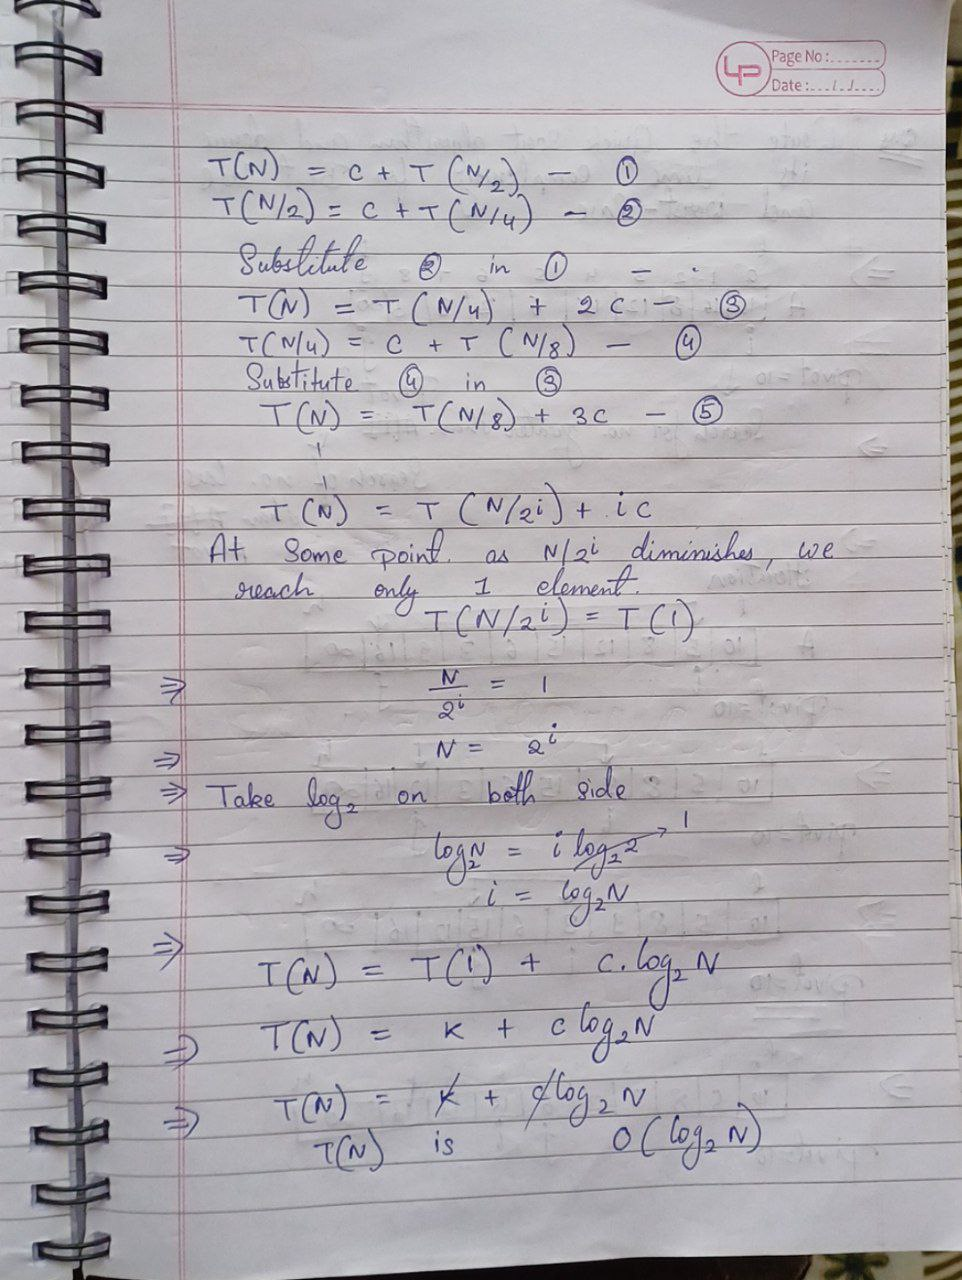 LP
Page No :.......
Date :.../.../....
T(N) = c + T (N/2) — ①
T(N/2) = c + T(N/4) — ②
Substitute ② in ① — .
T(N) = T (N/4) + 2 c — ③
T(N/4) = c + T (N/8) — ④
Substitute ④ in ③
T(N) = T(N/8) + 3c — ⑤
T(N) = T (N/2^i) + ic
At some point as N/2^i diminishes, we
reach only 1 element.
T(N/2^i) = T(1)
⇒ N/2^i = 1
⇒ N = 2^i
⇒ Take log₂ on both side
⇒ log₂N = i log₂2 → 1
i = log₂N
⇒ T(N) = T(1) + c.log₂ N
⇒ T(N) = K + c log₂N
⇒ T(N) = K + c log₂ N
T(N) is O(log₂ N)